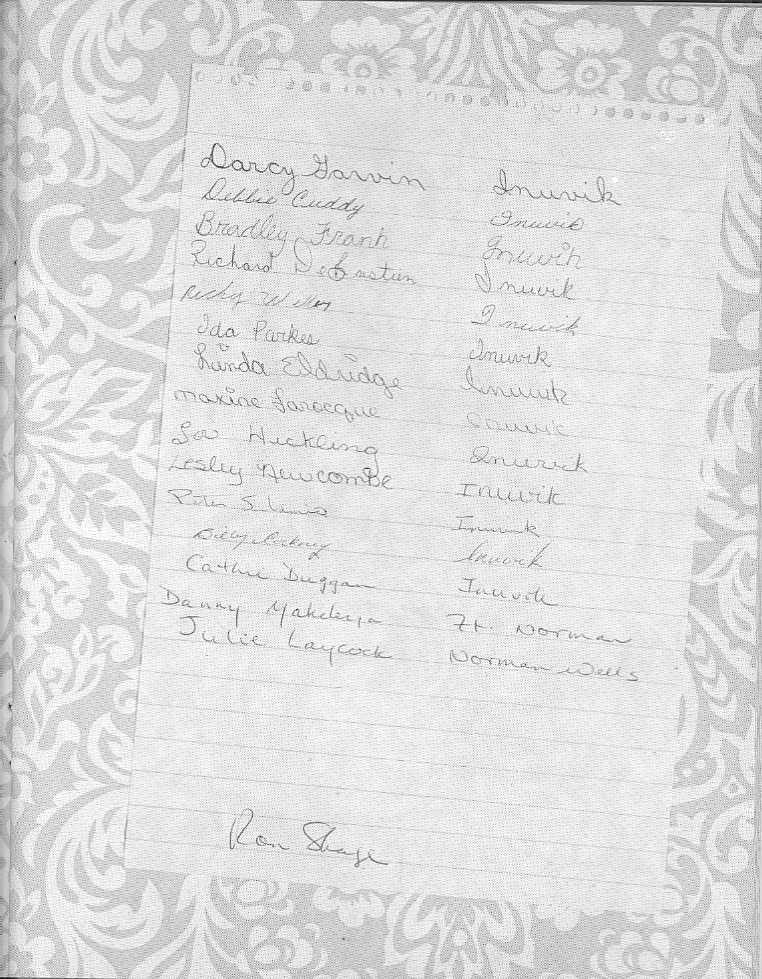 Darcy Garvin Inuvik
Debbie Cuddy Inuvik
Bradley Frank Inuvik
Richard Inuvik
Ricky Inuvik
Ida Parkes Inuvik
Linda Eldridge Inuvik
Maxine Larocque Inuvik
Lou Hickling Inuvik
Lesley Newcombe Inuvik
Peter S. Lewis Inuvik
Billy Inuvik
Cathie Duggan Inuvik
Danny Ft. Norman
Julie Laycock Norman Wells
Ron